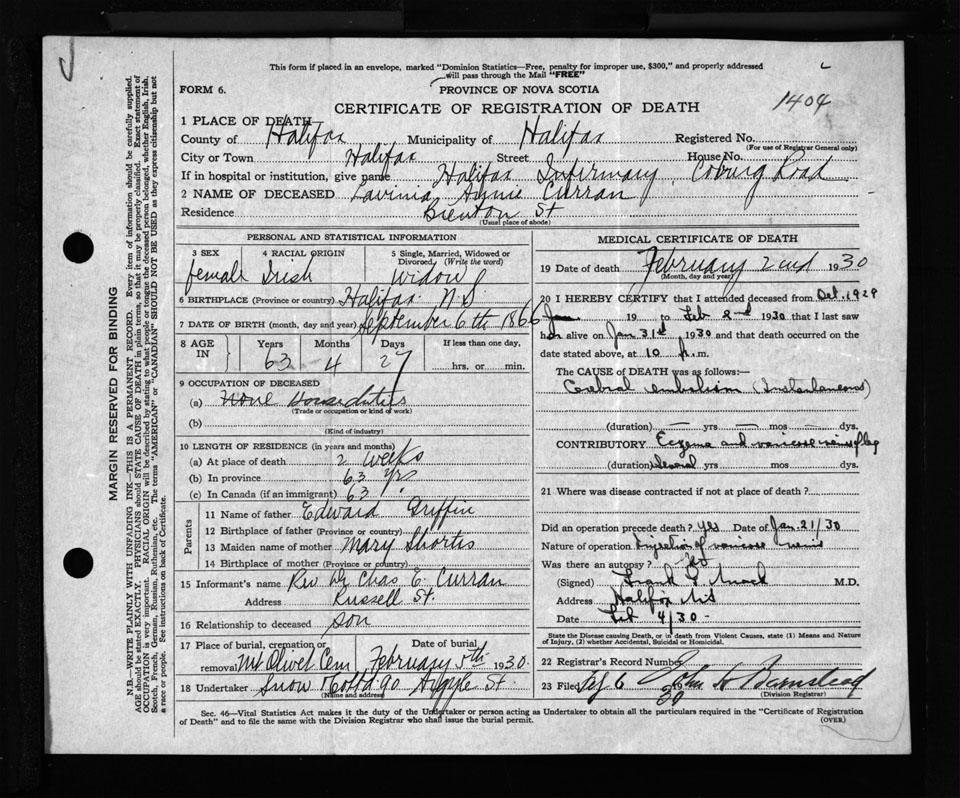 This form if placed in an envelope, marked "Dominion Statistics—Free, penalty for improper use, $300," and properly addressed
will pass through the Mail "FREE"
FORM 6.
PROVINCE OF NOVA SCOTIA
CERTIFICATE OF REGISTRATION OF DEATH
1404
1 PLACE OF DEATH
County of Halifax Municipality of Halifax Registered No.
(For use of Registrar General only)
City or Town Halifax Street House No.
If in hospital or institution, give name Halifax Infirmary Coburg Road
2 NAME OF DECEASED Lavinia Annie Curran
Residence Brenton St
(Usual place of abode)
PERSONAL AND STATISTICAL INFORMATION
3 SEX 4 RACIAL ORIGIN 5 Single, Married, Widowed or Divorced. (Write the word)
female Irish Widow
6 BIRTHPLACE (Province or country) Halifax N.S
7 DATE OF BIRTH (month, day and year) September 6th 1866
8 AGE IN Years Months Days If less than one day,
63 4 27 hrs. or min.
9 OCCUPATION OF DECEASED
(a) None House duties
(Trade or occupation or kind of work)
(b)
(Kind of industry)
10 LENGTH OF RESIDENCE (in years and months)
(a) At place of death 2 weeks
(b) In province 63 yrs
(c) In Canada (if an immigrant) 63
Parents
11 Name of father Edward Griffin
12 Birthplace of father (Province or country)
13 Maiden name of mother Mary Shortis
14 Birthplace of mother (Province or country)
15 Informant's name Rev Dr Chas E. Curran
Address Russell St.
16 Relationship to deceased son
17 Place of burial, cremation or removal Mt Olivet Cem Date of burial February 5th 1930.
18 Undertaker Snow & Co Ltd 90 Argyle St.
(Name and address)
MEDICAL CERTIFICATE OF DEATH
19 Date of death February 2nd 1930
(Month, day and year)
20 I HEREBY CERTIFY that I attended deceased from Oct. 1929
19 to Feb 2nd 1930 that I last saw
her alive on Jan 31st 1930 and that death occurred on
date stated above, at 10 p.m.
The CAUSE OF DEATH was as follows:—
Cerebral embolism (Instantaneous)
(duration) — yrs — mos — dys.
CONTRIBUTORY Eczema and varicose veins of leg
(duration) Several yrs mos dys.
21 Where was disease contracted if not at place of death?
Did an operation precede death? Yes Date of Jan. 21/30
Nature of operation Injection of varicose veins
Was there an autopsy? No
(Signed) Frank M.D.
Address Halifax N.S
Date Feb 4/30 -
State the Disease causing Death, or in death from Violent Causes, state (1) Means and Nature
of Injury, (2) whether Accidental, Suicidal or Homicidal.
22 Registrar's Record Number
23 Filed Feb 6 1930 John H Barnstead
(Division Registrar)
Sec. 46—Vital Statistics Act makes it the duty of the Undertaker or person acting as Undertaker to obtain all the particulars required in the "Certificate of Registration
of Death" and to file the same with the Division Registrar who shall issue the burial permit.
(OVER)
MARGIN RESERVED FOR BINDING
N.B.—WRITE PLAINLY WITH UNFADING INK—THIS IS A PERMANENT RECORD. Every item of information should be carefully supplied.
AGE should be stated EXACTLY. PHYSICIANS should STATE CAUSE OF DEATH in plain terms, so that it may be properly classified. Exact statement of
OCCUPATION is very important. RACIAL ORIGIN will be described by stating to what people or tongue the deceased person belonged, whether English, Irish,
Scotch, French, German, Russian, Ruthenian, etc. The terms "AMERICAN" or "CANADIAN" SHOULD NOT BE USED as they express citizenship but not
a race or people. See instructions on back of Certificate.